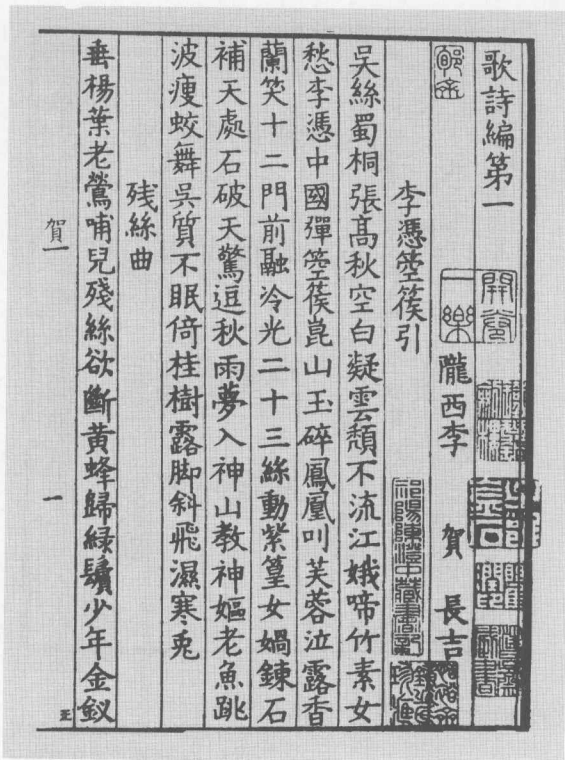 歌詩編第一
開卷一樂
隴西李　賀　長吉
李憑箜篌引
祁陽陳澄中藏書記
吳絲蜀桐張髙秋空白凝雲頹不流江娥啼竹素女
愁李憑中國彈箜篌崑山玉碎鳳凰叫芙蓉泣露香
蘭笑十二門前融冷光二十三絲動紫篁女媧鍊石
補天處石破天驚逗秋雨夢入神山教神嫗老魚跳
波瘦蛟舞吳質不眠倚桂樹露脚斜飛濕寒兎
残絲曲
垂楊葉老鶯哺兒殘絲欲斷黃蜂歸綠鬢少年金釵
賀一
一